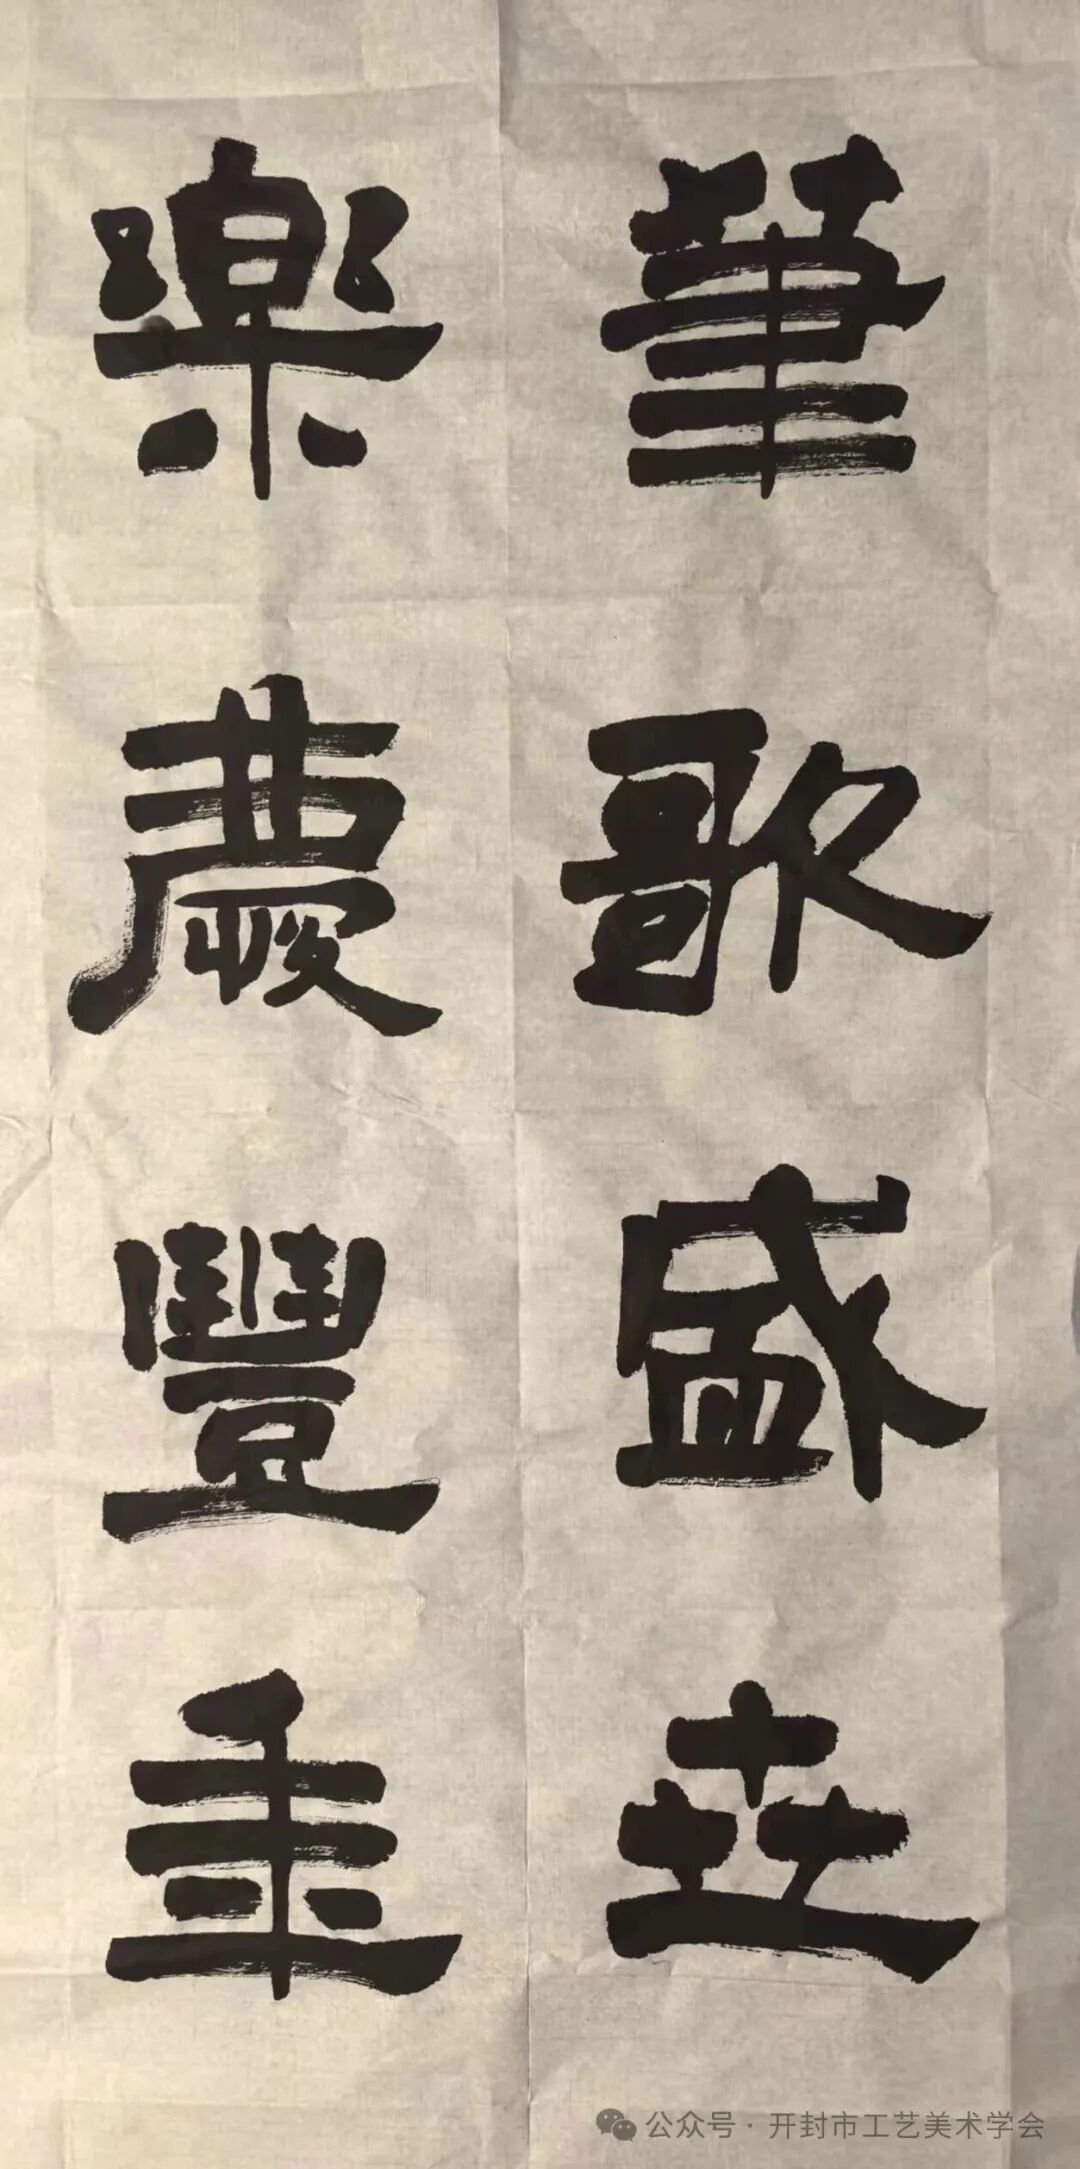 筆歌盛世
樂農豐年
公众号·开封市工艺美术学会